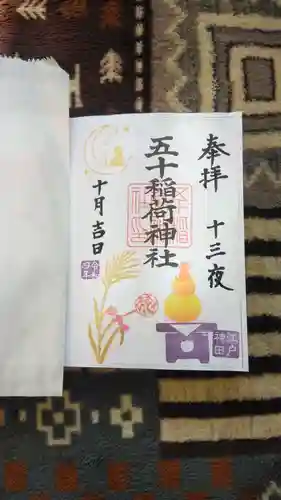 奉拝 十三夜
五十稲荷神社
十月吉日
江戸神田